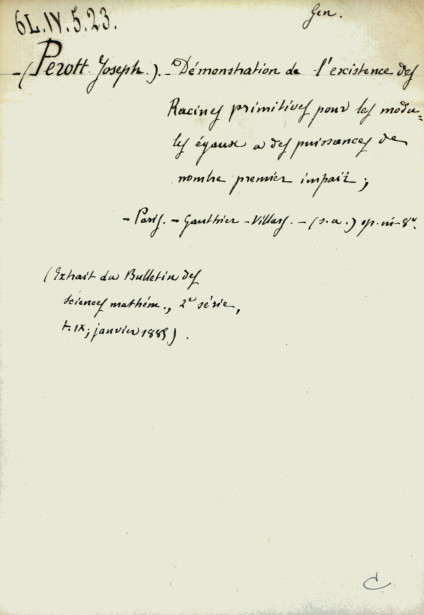 6L.IV.5.23.
Gen.
-(Perott Joseph.).- Démonstration de l'existence des
Racines primitives pour les modu-
les égaux a des puissances de
nombre premier impair;
- Paris. - Gauthier - Villars. - (s.a.) op. in-8°.
(Extrait du Bulletin des
sciences mathém., 2e série,
t. IX; janvier 1885).
C